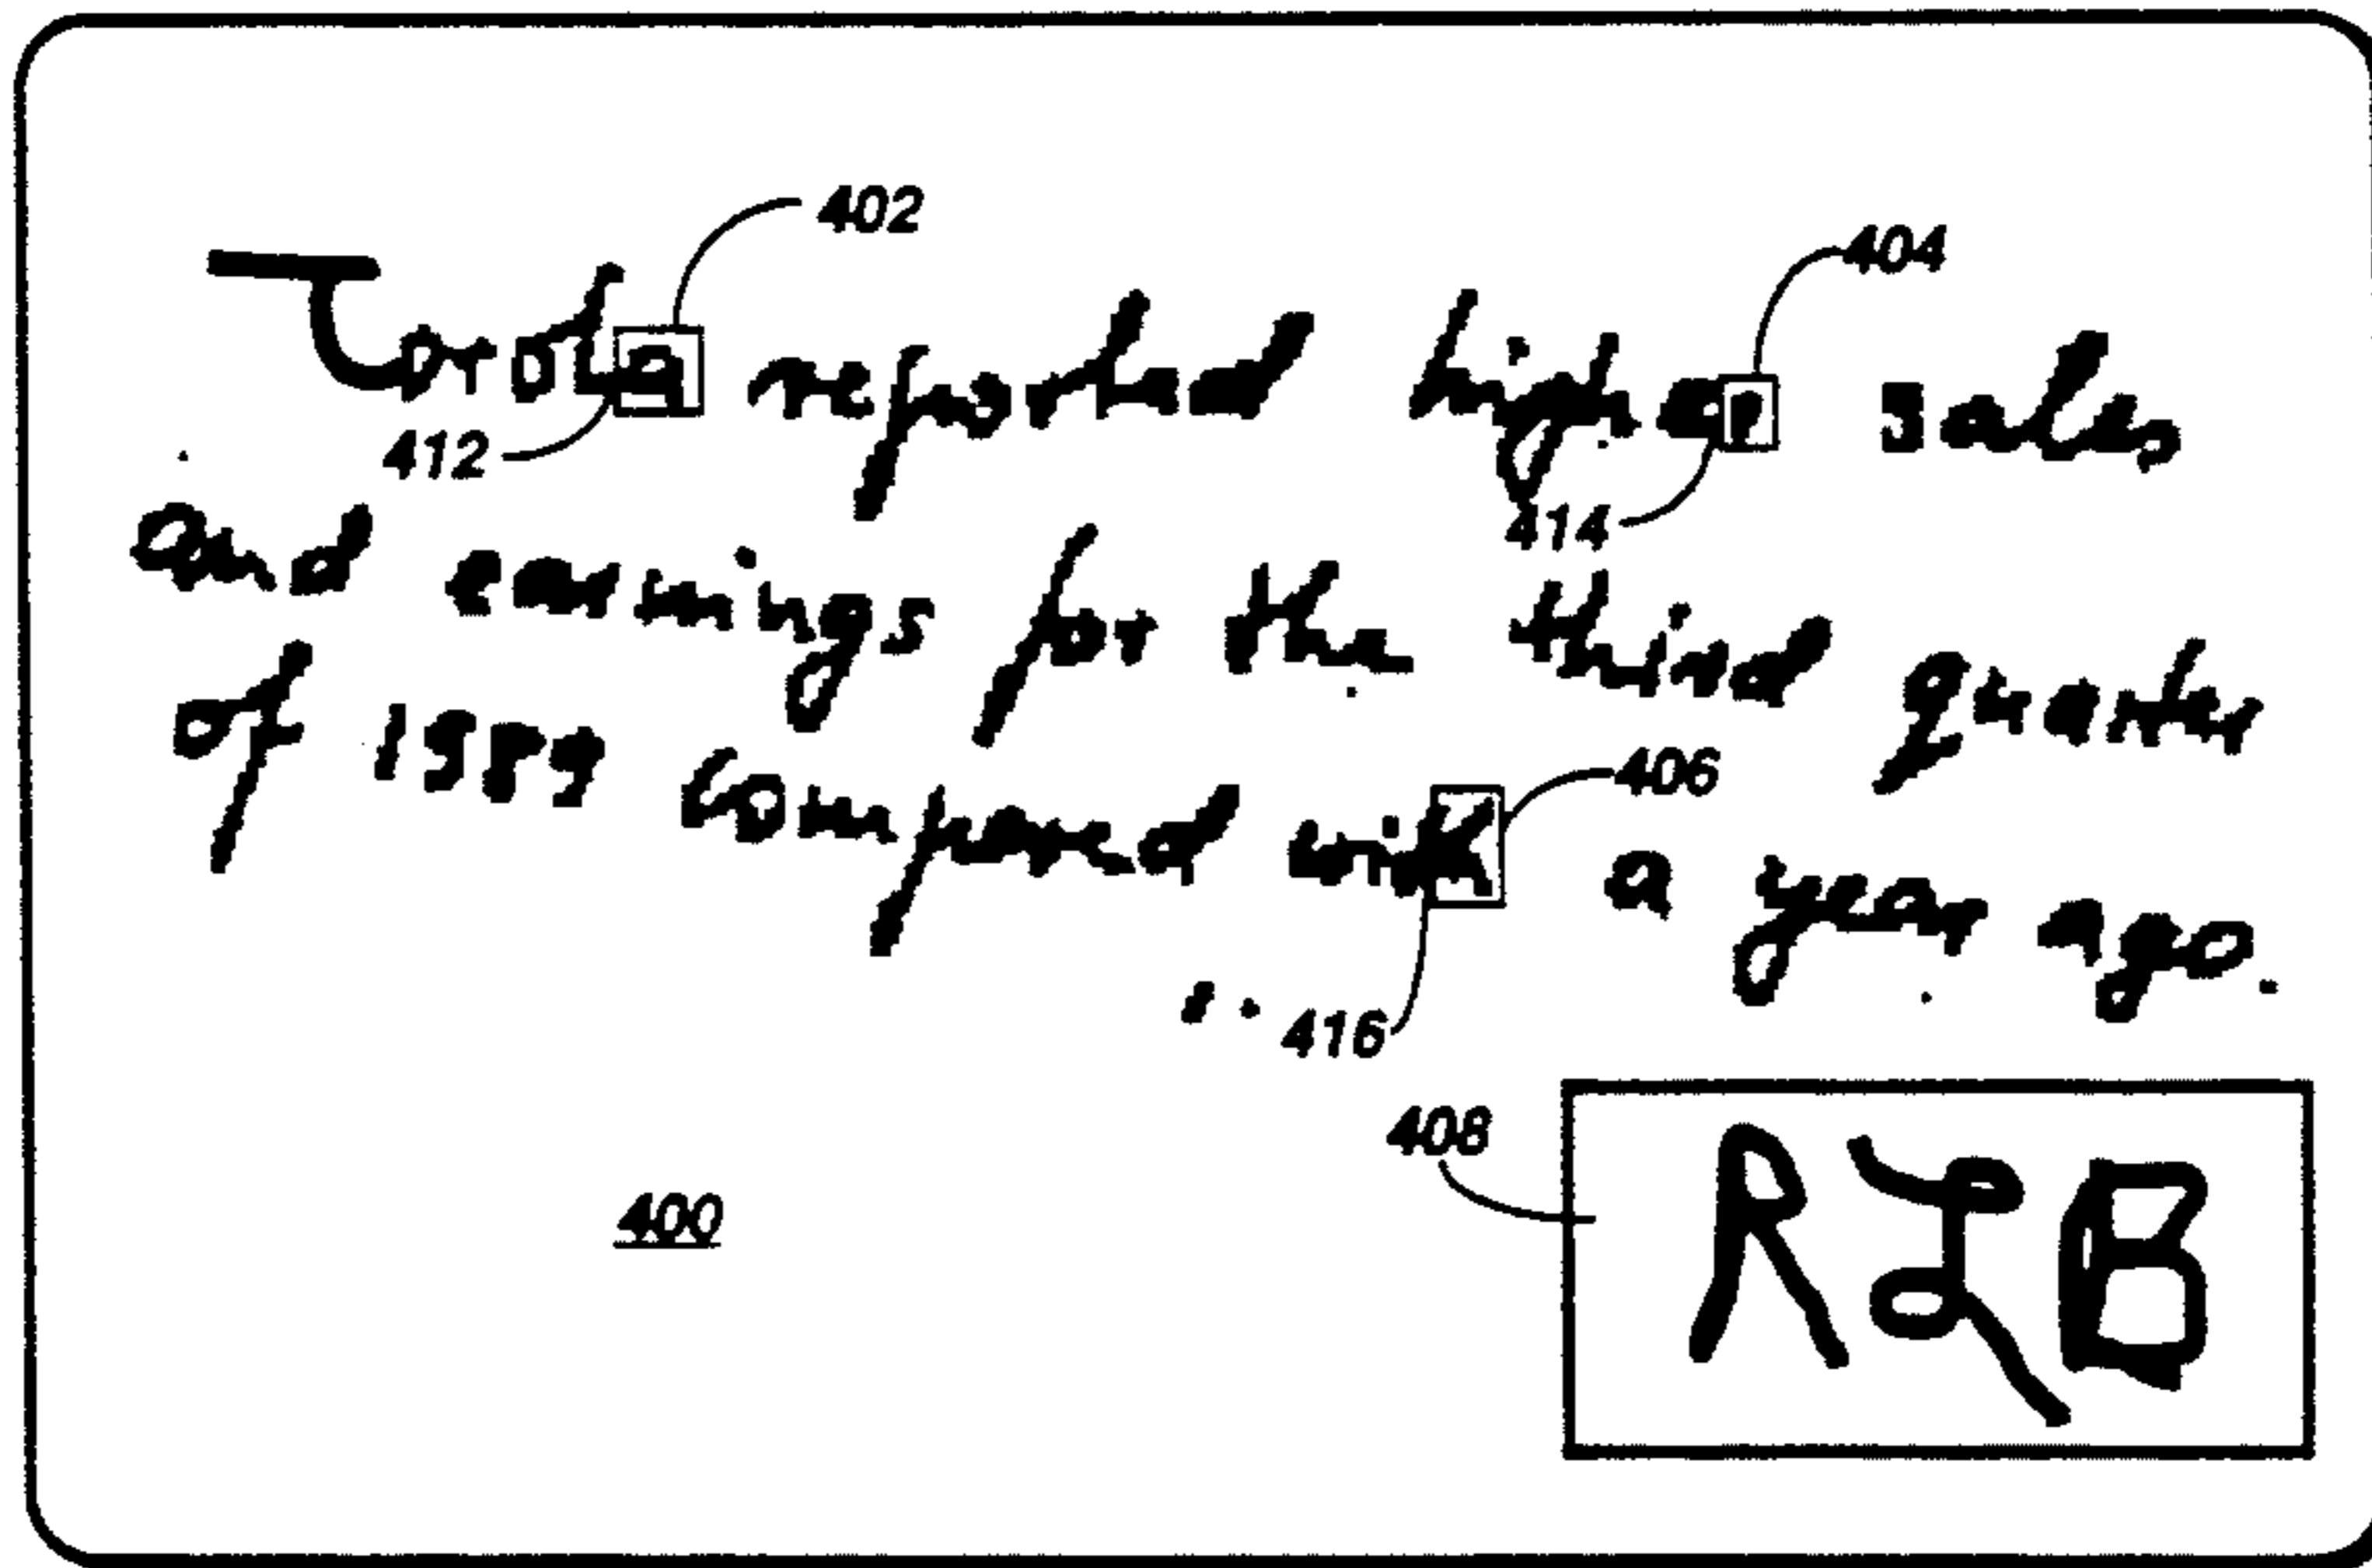 402
404
Torota reported higher sales
412
414
and earnings for the third quarter
of 1989 compared with a year ago.
406
416
408
400